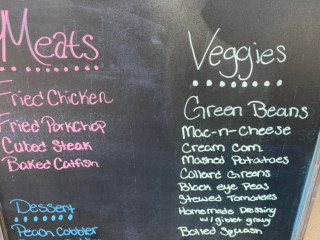 Meats
Fried Chicken
Fried Porkchop
Cubed Steak
Baked Catfish
Dessert
Peach Cobbler
Veggies
Green Beans
Mac-n-Cheese
Cream Corn
Mashed Potatoes
Collard Greens
Black eye Peas
Stewed Tomatoes
Homemade Dressing
w/giblet gravy
Baked Squash